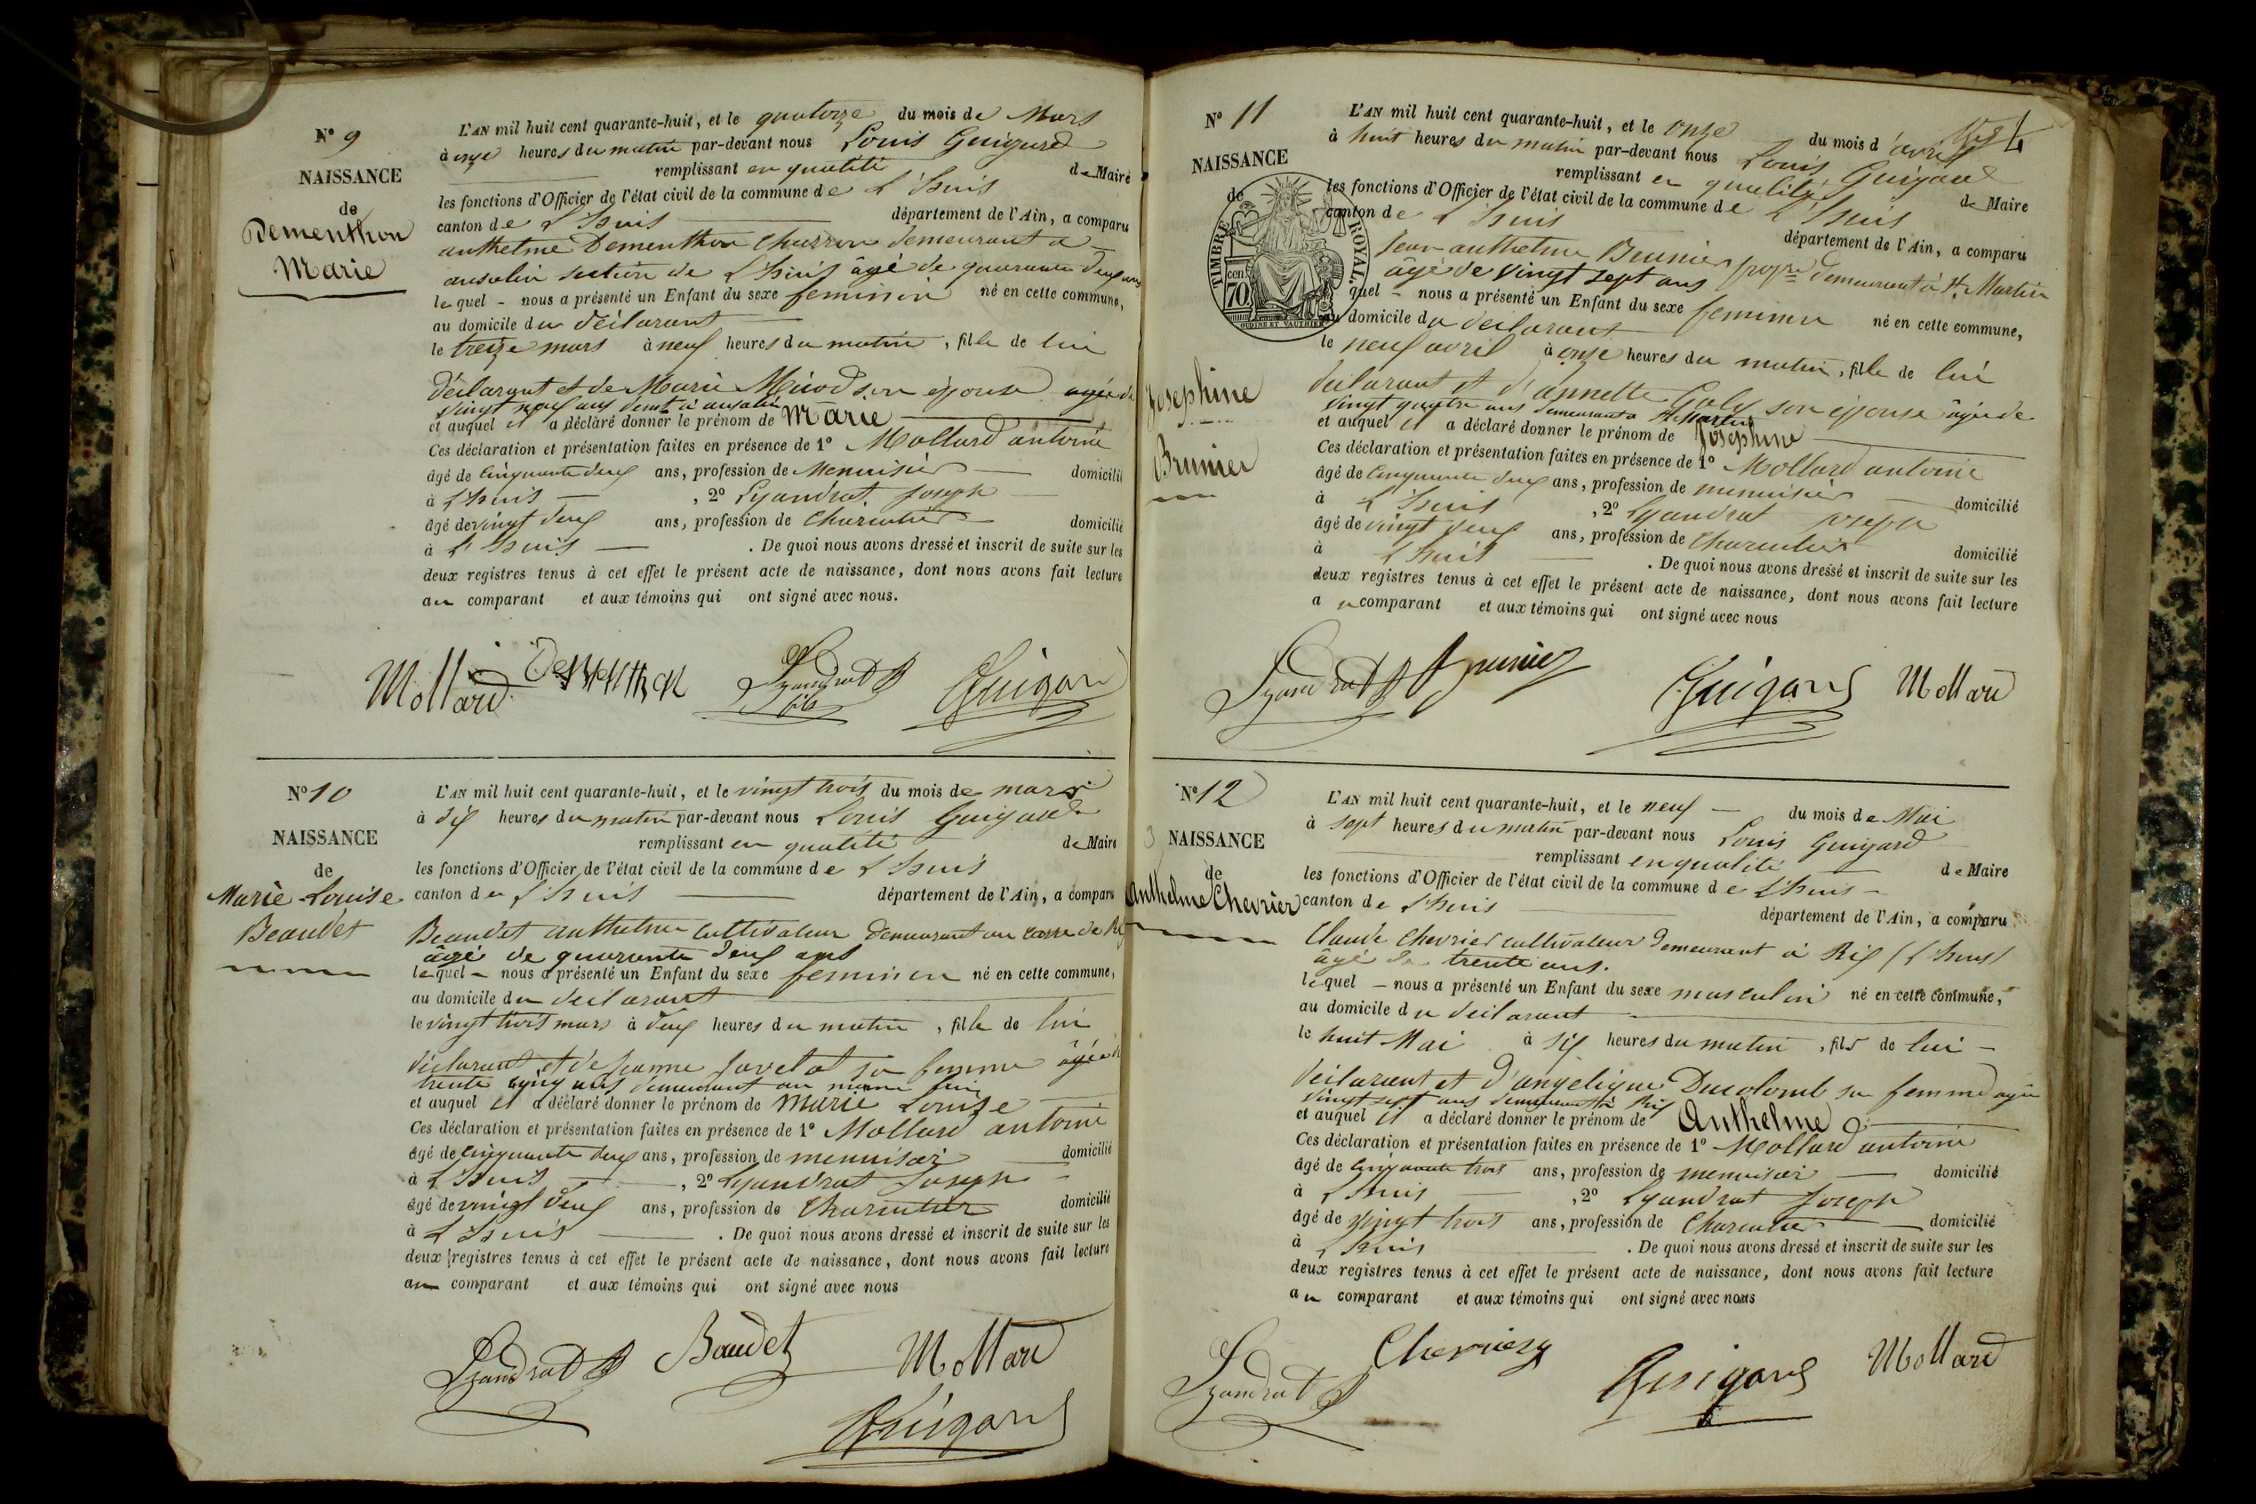 N° 9
NAISSANCE
de
Dementhon
Marie
L'AN mil huit cent quarante-huit, et le quatorze du mois de Mars
à onze heures du matin par-devant nous Louis Guigard
remplissant en qualité de Maire
les fonctions d'Officier de l'état civil de la commune de L'huis
canton de L'huis département de l'Ain, a comparu
anthelme Dementhon Charron demeurant a
ansolin section de L'huis âgé de quarante deux ans
lequel - nous a présenté un Enfant du sexe feminin né en cette commune,
au domicile du déclarant
le treize mars à neuf heures du matin, fille de lui
déclarant et de Marie Micod son épouse agée de
vingt neuf ans demt à ansolin
et auquel il a déclaré donner le prénom de Marie
Ces déclaration et présentation faites en présence de 1° Mollard antoine
âgé de cinquante deux ans, profession de Menuisier domicilié
à L'huis , 2° Lyandrat Joseph
âgé de vingt deux ans, profession de Charcutier domicilié
à L'huis . De quoi nous avons dressé et inscrit de suite sur les
deux registres tenus à cet effet le présent acte de naissance, dont nous avons fait lecture
au comparant et aux témoins qui ont signé avec nous.
Mollard Dementhon Lyandrat fils Guigard
N° 10
NAISSANCE
de
Marie Louise
Beaudet
L'AN mil huit cent quarante-huit, et le vingt trois du mois de mars
à dix heures du matin par-devant nous Louis Guigard
remplissant en qualité de Maire
les fonctions d'Officier de l'état civil de la commune de L'huis
canton de L'huis département de l'Ain, a comparu
Beaudet anthelme cultivateur demeurant au
âgé de quarante deux ans
lequel - nous a présenté un Enfant du sexe feminin né en cette commune,
au domicile du déclarant
le vingt trois mars à deux heures du matin, fille de lui
déclarant et de Jeanne Javelot sa femme âgée de
trente cinq ans demeurant au même lieu
et auquel il a déclaré donner le prénom de Marie Louise
Ces déclaration et présentation faites en présence de 1° Mollard antoine
âgé de cinquante deux ans, profession de menuisier domicilié
à L'huis , 2° Lyandrat Joseph
âgé de vingt deux ans, profession de Charcutier domicilié
à L'huis . De quoi nous avons dressé et inscrit de suite sur les
deux registres tenus à cet effet le présent acte de naissance, dont nous avons fait lecture
au comparant et aux témoins qui ont signé avec nous
Lyandrat Baudet Mollard
Guigard
N° 11
NAISSANCE
de
TIMBRE ROYAL.
cen
70
OUDINÉ ET VAUTHIER
Josephine
Brunier
L'AN mil huit cent quarante-huit, et le onze du mois d'avril
à huit heures du matin par-devant nous Louis Guigard
remplissant en qualité de Maire
les fonctions d'Officier de l'état civil de la commune de L'huis
canton de L'huis département de l'Ain, a comparu
Jean anthelme Brunier demeurant à St Martin
âgé de vingt sept ans
quel - nous a présenté un Enfant du sexe feminin né en cette commune,
au domicile du déclarant
le neuf avril à onze heures du matin, fille de lui
déclarant et d'annette Goly son épouse âgée de
vingt quatre ans demeurant a St Martin
et auquel il a déclaré donner le prénom de Josephine
Ces déclaration et présentation faites en présence de 1° Mollard antoine
âgé de cinquante deux ans, profession de menuisier domicilié
à L'huis , 2° Lyandrat Joseph
âgé de vingt deux ans, profession de Charcutier domicilié
à L'huis . De quoi nous avons dressé et inscrit de suite sur les
deux registres tenus à cet effet le présent acte de naissance, dont nous avons fait lecture
au comparant et aux témoins qui ont signé avec nous
Lyandrat Brunier Guigard Mollard
N° 12
NAISSANCE
de
Anthelme Chevrier
L'AN mil huit cent quarante-huit, et le neuf du mois de Mai
à sept heures du matin par-devant nous Louis Guigard
remplissant en qualité de Maire
les fonctions d'Officier de l'état civil de la commune de L'huis
canton de L'huis département de l'Ain, a comparu
Claude Chevrier cultivateur demeurant à Rix (L'huis)
âgé de trente ans.
lequel - nous a présenté un Enfant du sexe masculin né en cette commune,
au domicile du déclarant
le huit Mai à six heures du matin, fils de lui
déclarant et d'angelique Ducolomb sa femme agée
vingt sept ans demeurant à Rix
et auquel il a déclaré donner le prénom de Anthelme
Ces déclaration et présentation faites en présence de 1° Mollard antoine
âgé de cinquante trois ans, profession de menuisier domicilié
à L'huis , 2° Lyandrat Joseph
âgé de vingt trois ans, profession de Charcutier domicilié
à L'huis . De quoi nous avons dressé et inscrit de suite sur les
deux registres tenus à cet effet le présent acte de naissance, dont nous avons fait lecture
au comparant et aux témoins qui ont signé avec nous
Lyandrat Chevrier Guigard Mollard